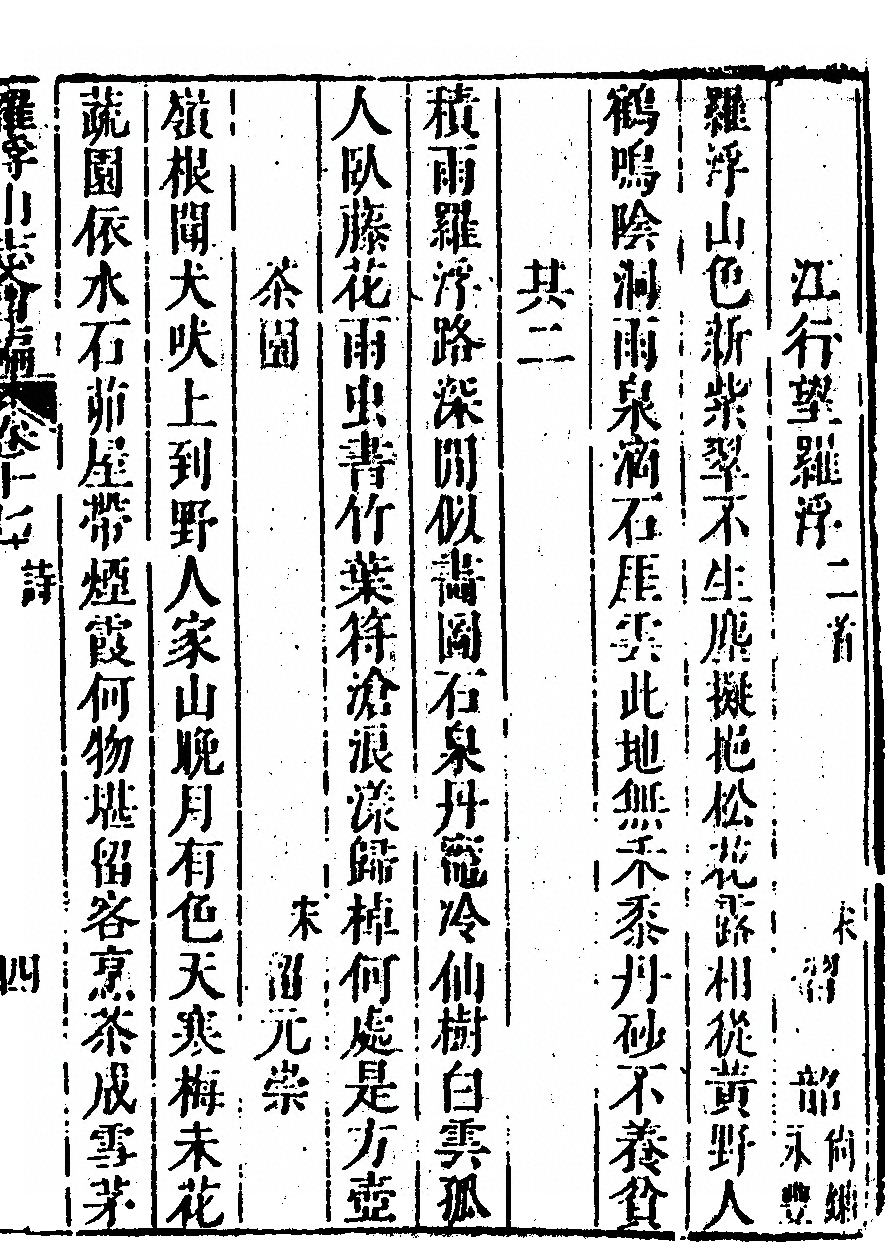 江行望羅浮二首 宋 韶 永豐
羅浮山色新紫翠不生塵擬挹松花露相從黃野人
鶴鳴陰洞雨泉滴石厓雲此地無禾黍丹砂不養貧
其二
積雨羅浮路深閒似畫圖石泉丹竈冷仙樹白雲孤
人臥藤花雨虫書竹葉符滄浪漾歸棹何處是方壺
茶園 宋 元崇
嶺根聞犬吠上到野人家山晚月有色天寒梅未花
蔬園依水石茆屋帶煙霞何物堪留客烹茶成雪茅
羅浮山志會編 卷十七 詩 四